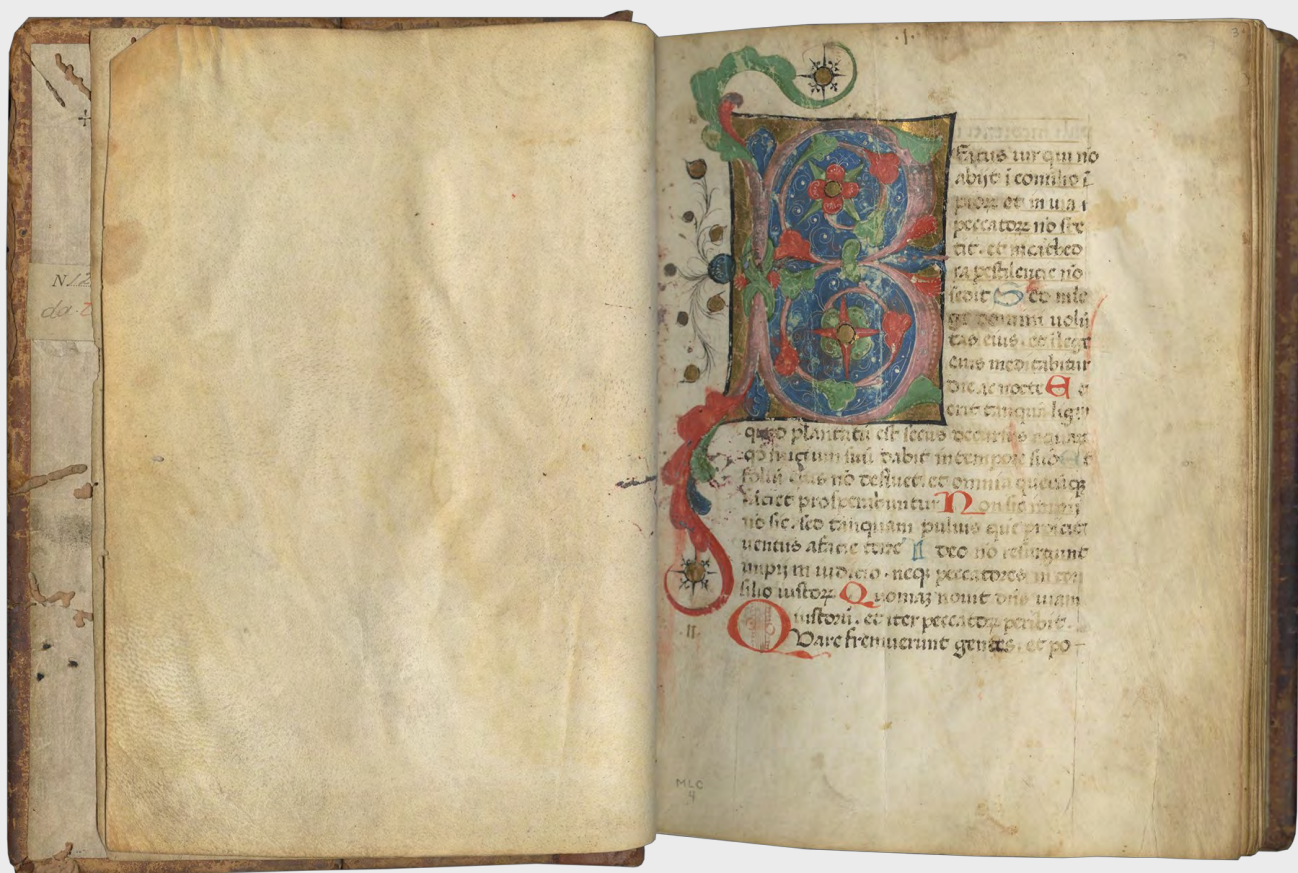 N12
da·2
·I·
3
B
eatus uir qui nō
abijt ī consilio ī
pioꝝ et in uia
peccatoꝝ nō ste
tit. et in cathed
ra pestilencie nō
sedit Sed in le
ge domini uolū
tas eius. et ī lege
eius meditabitur
die ac nocte E
erit tanquā lignū
quod plantatū est secus decursus aquaꝝ
qd fructum suū dabit in tempore suo Et
foliū eius nō defluet. et omnia quecūqꝫ
faciet prosperabuntur Non sic impij
nō sic. sed tanquam puluis quē proicit
uentus a facie terre I deo nō resurgunt
impij in iudicio. neqꝫ peccatores in con
silio iustoꝝ Quoniaꝫ nouit dn̄s uiam
iustoꝝ. et iter peccatoꝝ peribit.
·II·
Quare fremuerunt gentes. et po-
MLC
4